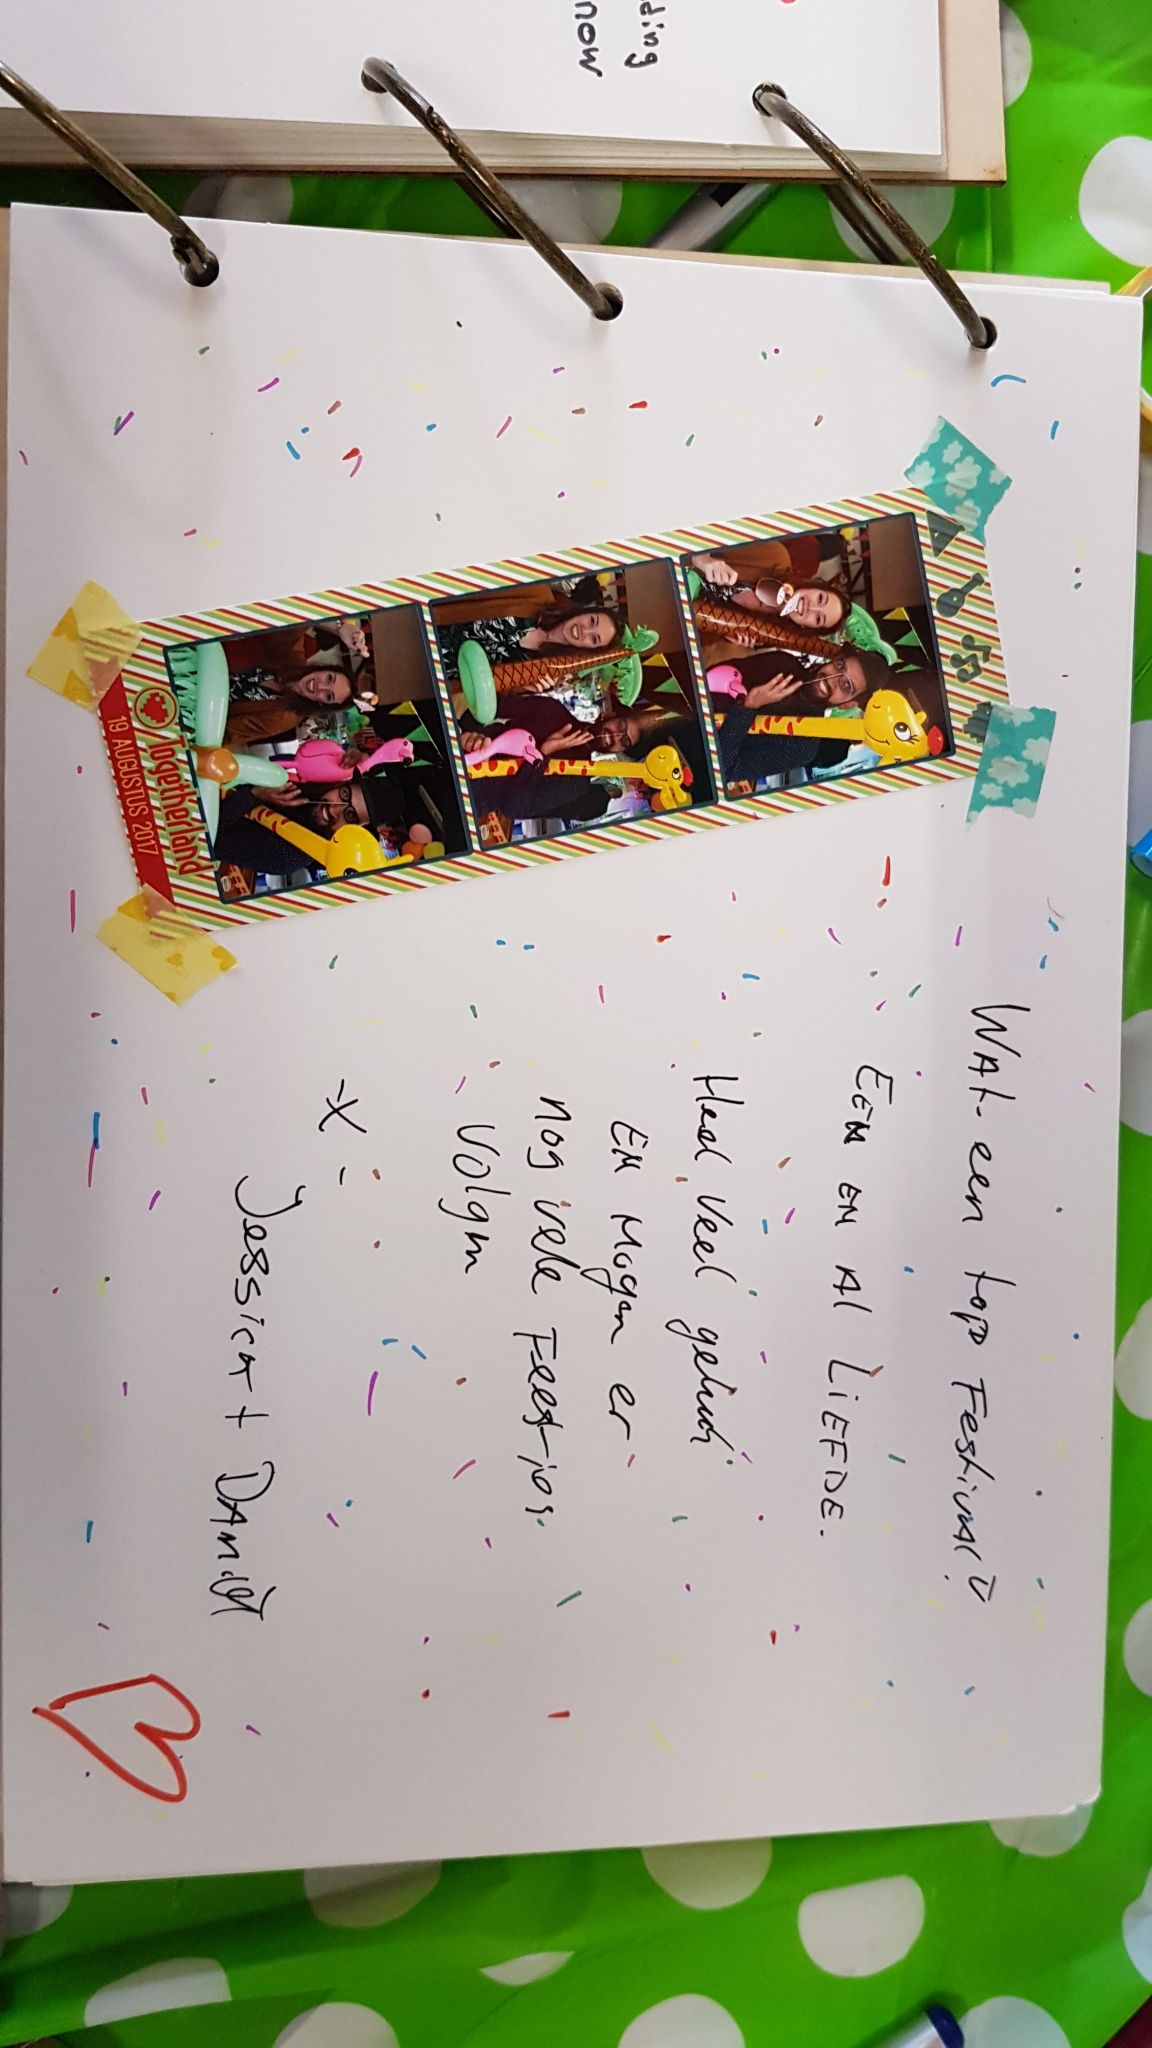 ding
now
Togetherland
19 AUGUSTUS 2017
WAt een top FestivAl!
EEN EN Al LIEFDE.
Heel Veel geluk
EN Mogen er
nog vele Feestjes
Volgen
-X-
Jessica + DAniël